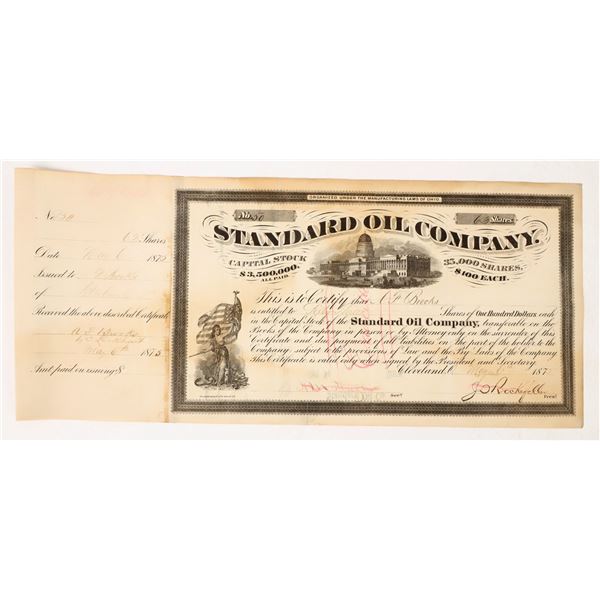 No. 50
63 Shares
Date 1875
Issued to
of
Received the above described Certificate
May 6th 1875
Amt paid on issuing $
ORGANIZED UNDER THE MANUFACTURING LAWS OF OHIO.
No. 50
63 Shares
STANDARD OIL COMPANY.
CAPITAL STOCK
$3,500,000.
ALL PAID.
35,000 SHARES,
$100 EACH.
This is to Certify that Brooks
is entitled to Shares of One Hundred Dollars each
in the Capital Stock of the Standard Oil Company, transferable on the
Books of the Company in person or by Attorney only on the surrender of this
Certificate and due payment of all liabilities on the part of the holder to the
Company, subject to the provisions of Law and the By Laws of the Company
This Certificate is valid only when signed by the President and Secretary
Cleveland, 187
Sec'y
J D Rockefeller
Pres't